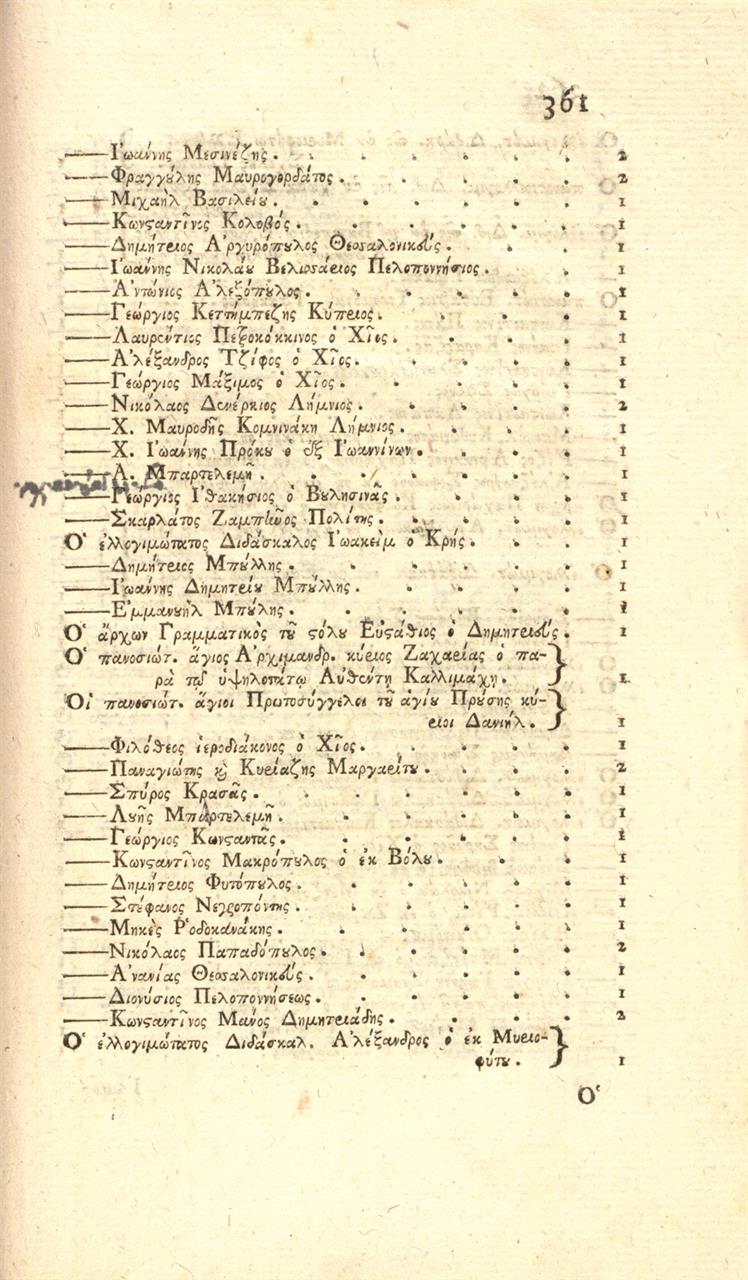 361
—— Ἰωάννης Μεσινέζης . . . . . . . 2
—— Φραγγούλης Μαυρογορδάτος . . . . . 2
—— Μιχαὴλ Βασιλείου . . . . . . . 1
—— Κωνσταντῖνος Κολοβός . . . . . . 1
—— Δημήτριος Ἀργυρόπουλος Θεσσαλονικεύς . . . 1
—— Ἰωάννης Νικολάου Βελισσάριος Πελοποννήσιος . . 1
—— Ἀντώνιος Ἀλεξόπουλος . . . . . . 1
—— Γεώργιος Κεττήμπεζης Κύπριος . . . . 1
—— Λαυρέντιος Πετροκόκκινος ὁ Χῖος . . . . 1
—— Ἀλέξανδρος Τζίφος ὁ Χῖος . . . . . 1
—— Γεώργιος Μάξιμος ὁ Χῖος . . . . . 1
—— Νικόλαος Δενέρκιος Λήμνιος . . . . . 2
—— Χ. Μαυροδῆς Κομνινάκη Λήμνιος . . . . 1
—— Χ. Ἰωάννης Πρόκου ὁ ἐξ Ἰωαννίνων . . . . 1
—— Λ. Μπαρτελεμῆ . . . . . . . 1
—— Γεώργιος Ἰθακήσιος ὁ Βουλησινᾶς . . . . 1
—— Σκαρλάτος Ζαμπῖνος Πολίτης . . . . . 1
Ὁ ἐλλογιμώτατος Διδάσκαλος Ἰωακεὶμ ὁ Κρής . . . 1
—— Δημήτριος Μπούλλης . . . . . . 1
—— Ἰωάννης Δημητρίου Μπούλλης . . . . . 1
—— Ἐμμανουὴλ Μπούλης . . . . . . 1
Ὁ ἄρχων Γραμματικὸς τοῦ στόλου Εὐστάθιος ὁ Δημητριεύς . 1
Ὁ πανοσιώτ. ἅγιος Ἀρχιμανδρ. κύριος Ζαχαρίας ὁ πα-
ρὰ τῷ ὑψηλοτάτῳ Αὐθέντῃ Καλλιμάχῃ . } 1
Οἱ πανοσιώτ. ἅγιοι Πρωτοσύγγελοι τοῦ ἁγίου Προύσης κύ-
ριοι Δανιήλ . } 1
—— Φιλόθεος ἱεροδιάκονος ὁ Χῖος . . . . . 1
—— Παναγιώτης καὶ Κυριάζης Μαργαρίτου . . . . 2
—— Σπύρος Κρασᾶς . . . . . . . 1
—— Λουῆς Μπαρτελεμῆ . . . . . . 1
—— Γεώργιος Κωνσταντᾶς . . . . . . 1
—— Κωνσταντῖνος Μακρόπουλος ὁ ἐκ Βόλου . . . . 1
—— Δημήτριος Φυτόπουλος . . . . . . 1
—— Στέφανος Νεγροπόντης . . . . . . 1
—— Μηκὲς Ῥοδοκανάκης . . . . . . 1
—— Νικόλαος Παπαδόπουλος . . . . . . 2
—— Ἀνανίας Θεσσαλονικεύς . . . . . . 1
—— Διονύσιος Πελοποννήσεως . . . . . . 1
—— Κωνσταντῖνος Μάνος Δημητριάδης . . . . 2
Ὁ ἐλλογιμώτατος Διδάσκαλ. Ἀλέξανδρος ὁ ἐκ Μυριο-
φύτου . } 1
Ὁ